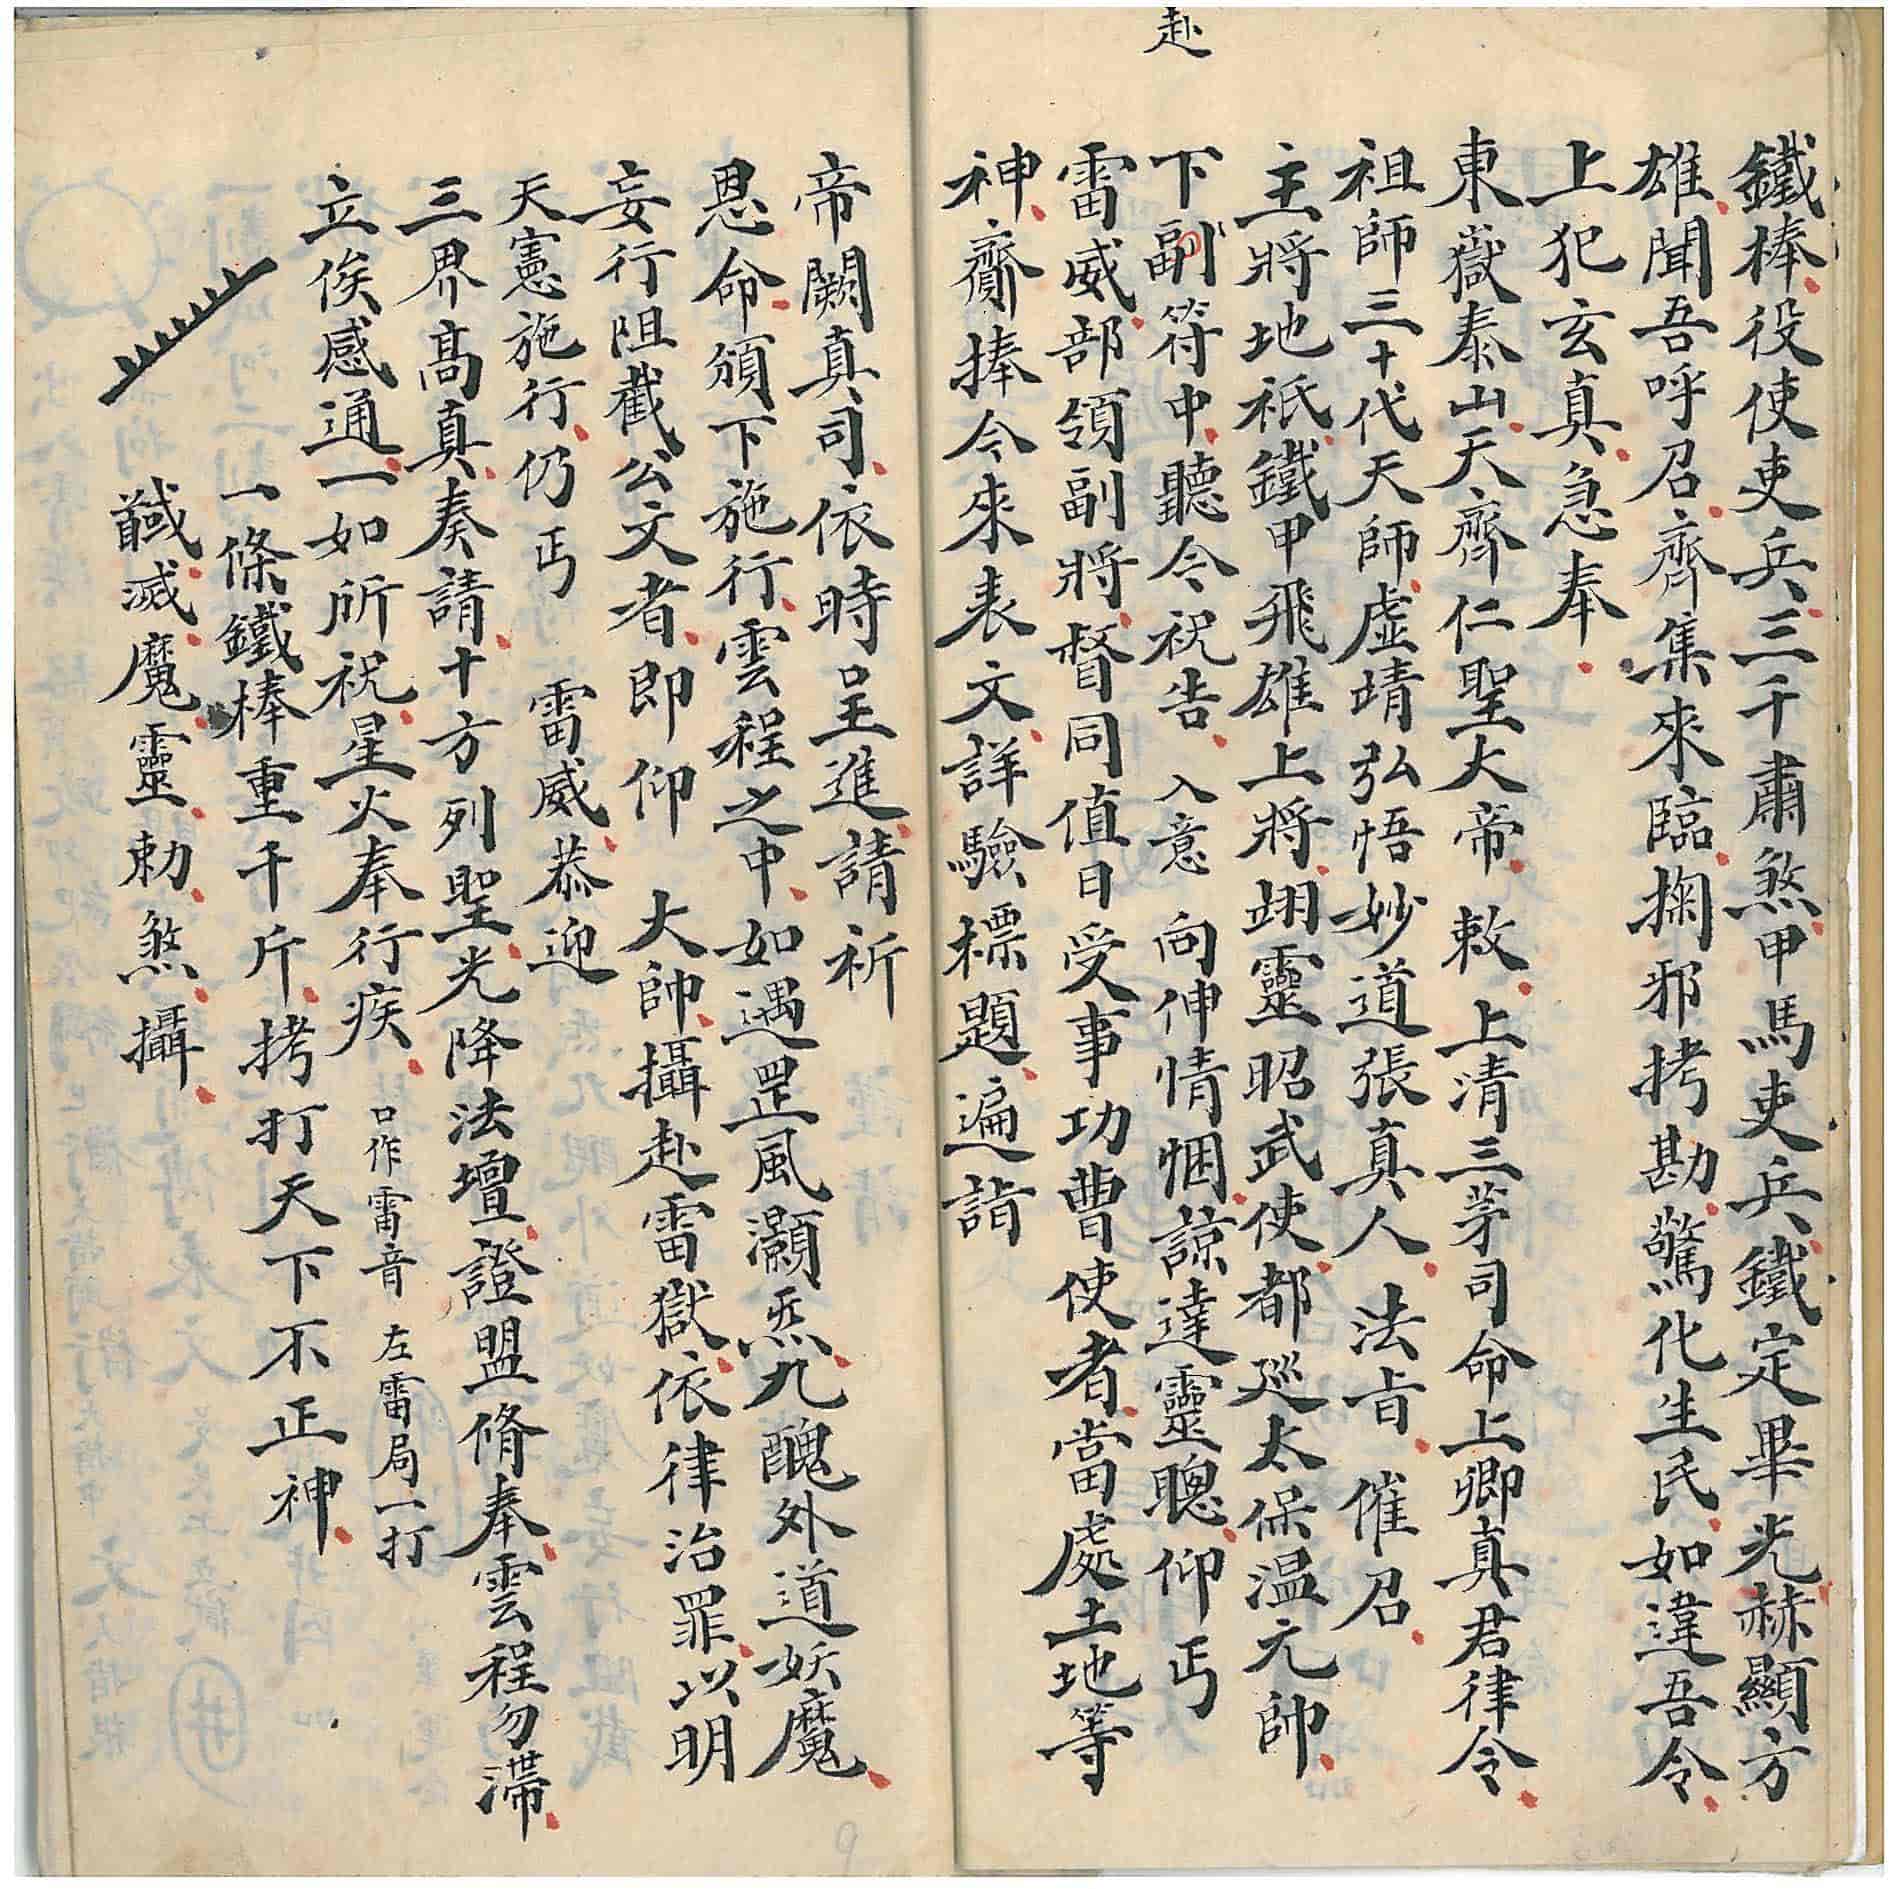 赴
鐵棒役使吏兵三千肅煞甲馬吏兵鐵定畢光赫顯方
雄聞吾呼召齊集來臨掬邪拷勘驚化生民如違吾令
上犯玄真急奉
東嶽泰山天齊仁聖大帝敕上清三茅司命上卿真君律令
祖師三十代天師虛靖弘悟妙道張真人法旨催召
主將地祇鐵甲飛雄上將翊靈昭武使都巡太保温元帥
下副符中聽令祝告 入意 向伸情悃諒達靈聰仰丐
雷威部領副將督同值日受事功曹使者當處土地等
神齎捧今來表文詳驗標題遍詣
帝闕真司依時呈進請祈
恩命頒下施行雲程之中如遇罡風灝炁九醜外道妖魔
妄行阻截公文者即仰 大帥攝赴雷獄依律治罪以明
天憲施行仍丐 雷威恭迎
三界高真奏請十方列聖光降法壇證盟脩奉雲程勿滯
立俟感通一如所祝星火奉行疾 口作雷音 左雷局一打
一條鐵棒重千斤拷打天下不正神
馘滅魔靈勅煞攝